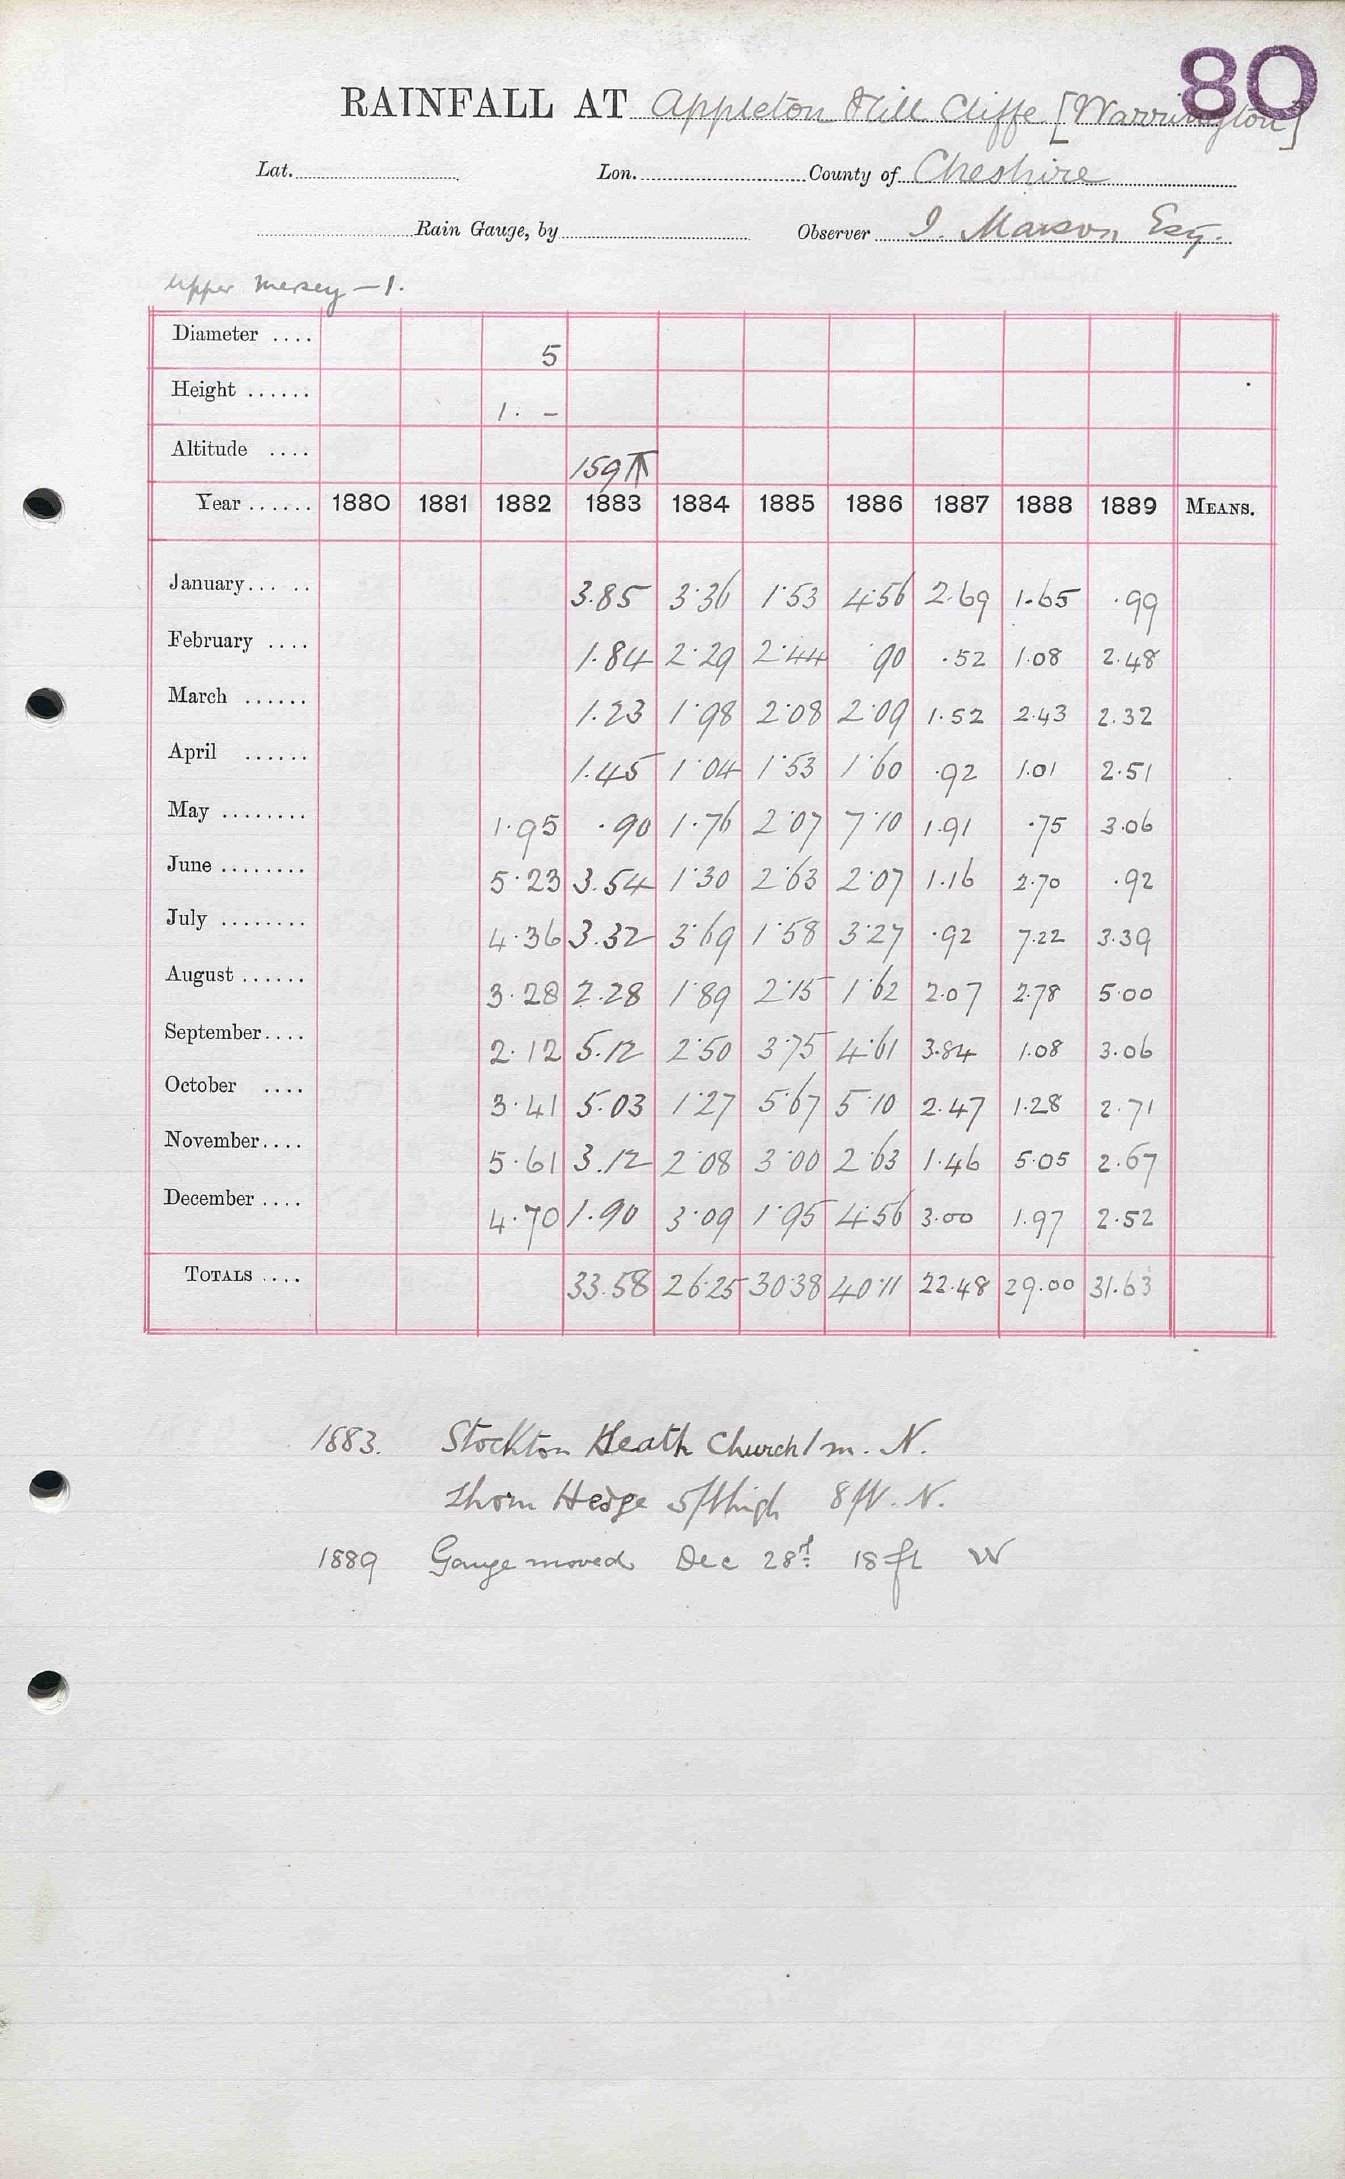 80
RAINFALL AT Appleton Hill Cliffe [Warrington]
Lat. Lon. County of Cheshire
Rain Gauge, by Observer I. Marson Esq.
Upper Mersey — 1.
Diameter .... 5
Height ...... 1. –
Altitude .... 159 ↑
Year ...... 1880 1881 1882 1883 1884 1885 1886 1887 1888 1889 MEANS.
January...... 3.85 3.36 1.53 4.56 2.69 1.65 .99
February .... 1.84 2.29 2.44 .90 .52 1.08 2.48
March ...... 1.23 1.98 2.08 2.09 1.52 2.43 2.32
April ...... 1.45 1.04 1.53 1.60 .92 1.01 2.51
May ........ 1.95 .90 1.76 2.07 7.10 1.91 .75 3.06
June ........ 5.23 3.54 1.30 2.63 2.07 1.16 2.70 .92
July ........ 4.36 3.32 3.69 1.58 3.27 .92 7.22 3.39
August ...... 3.28 2.28 1.89 2.15 1.62 2.07 2.78 5.00
September.... 2.12 5.12 2.50 3.75 4.61 3.84 1.08 3.06
October .... 3.41 5.03 1.27 5.67 5.10 2.47 1.28 2.71
November.... 5.61 3.12 2.08 3.00 2.63 1.46 5.05 2.67
December .... 4.70 1.90 3.09 1.95 4.56 3.00 1.97 2.52
TOTALS .... 33.58 26.25 30.38 40.11 22.48 29.00 31.63
1883. Stockton Heath Church 1 m. N.
Thorn Hedge 5 ft high 8 ft. N.
1889 Gauge moved Dec 28th 18 ft W